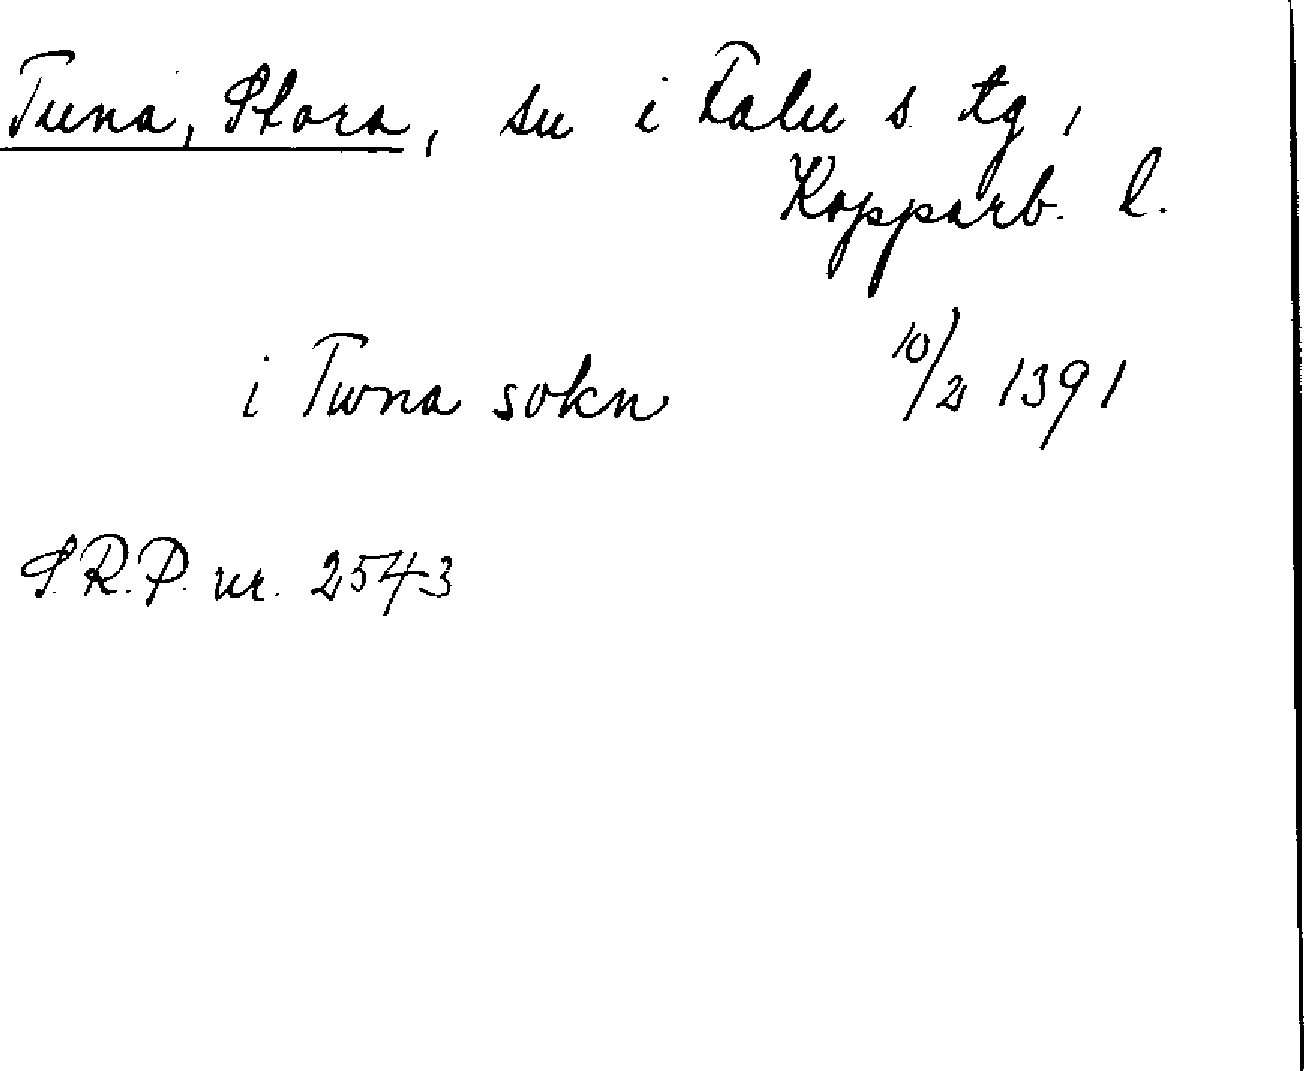 Tuna, Stora, sn i Falu s. tg,
Kopparb. l.
i Twna sokn 10/2 1391
S.R.P. nr. 2543